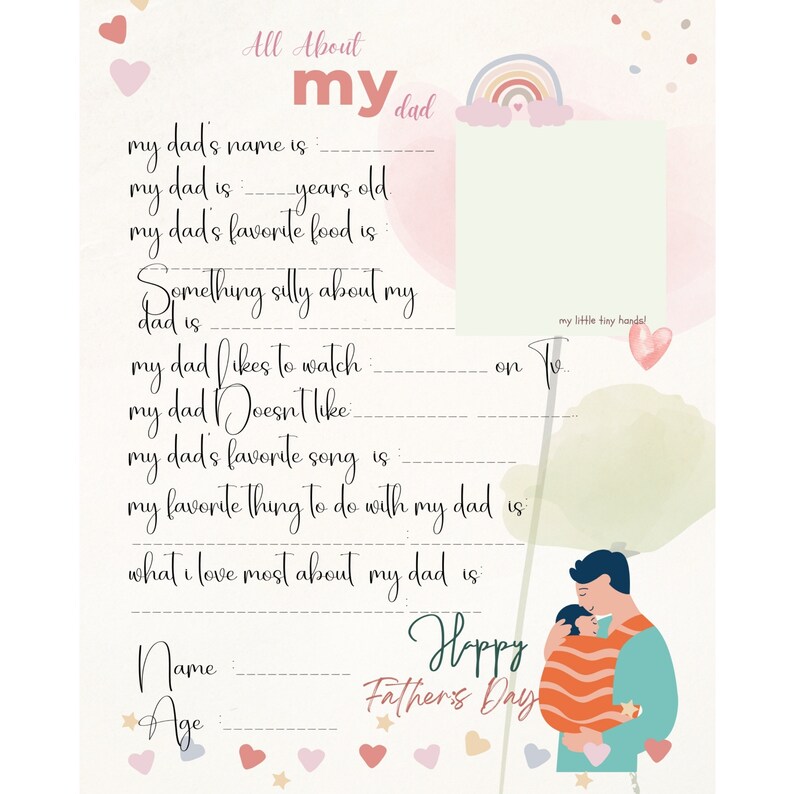 All About
my
dad
my dad's name is :___________
my dad is :_____years old.
my dad's favorite food is :
_______________________
Something silly about my
dad is ________ ____________
my dad Likes to watch :___________ on Tv..
my dad Doesn't like:___________ __________..
my dad's favorite song is :___________
my favorite thing to do with my dad is:
__________________________:___________
what i love most about my dad is:
__________________________:_______
Name :___________
Age :___________
my little tiny hands!
Happy
Father's Day